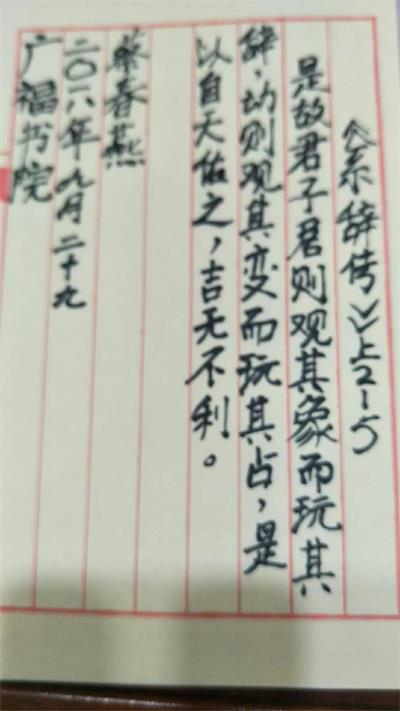 《系辞传》上2-5
是故君子居则观其象而玩其
辞，动则观其变而玩其占，是
以自天佑之，吉无不利。
蔡春燕
二〇一八年九月二十九
广福书院